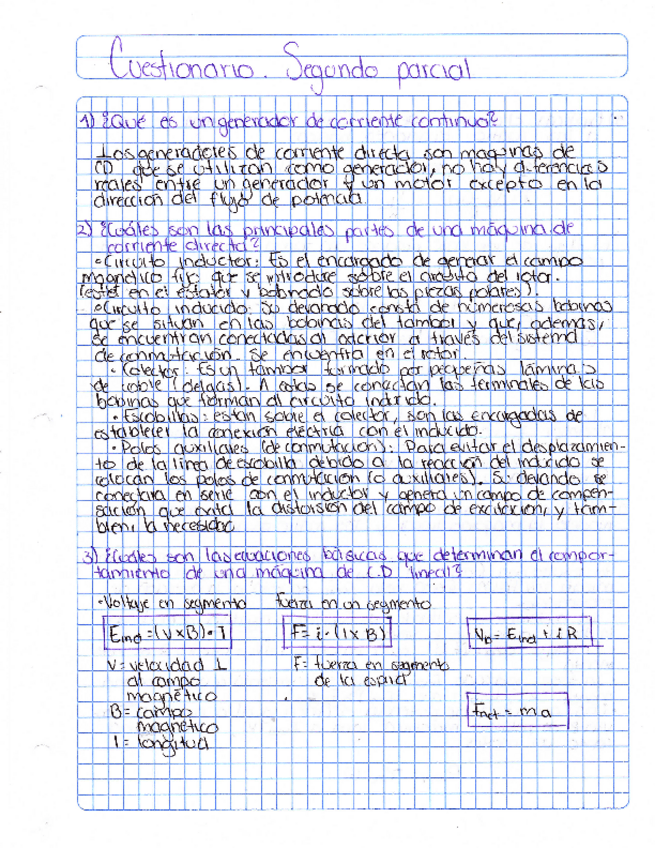 Cuestionario. Segundo parcial
1) ¿Qué es un generador de corriente continua?
Los generadores de corriente directa son maquinas de
CD que se utilizan como generador, no hay diferencias
reales entre un generador y un motor excepto en la
dirección del flujo de potencia.
2) ¿Cuáles son las principales partes de una máquina de
corriente directa?
• Circuito inductor: Es el encargado de generar el campo
magnético fijo que se introduce sobre el circuito del rotor.
(está en el estator y bobinado sobre las piezas polares).
• Circuito inducido: Su devanado consta de numerosas bobinas
que se situan en las bobinas del tambor y que, además,
se encuentran conectadas al exterior a través del sistema
de conmutación. Se encuentra en el rotor.
• Colector: Es un tambor formado por pequeñas láminas
de cobre (delgas). A estas se conectan las terminales de las
bobinas que forman el circuito inducido.
• Escobillas: están sobre el colector, son las encargadas de
establecer la conexión eléctrica con el inducido.
• Polos auxiliares (de conmutación): Para evitar el desplazamien-
to de la línea de escobilla debido a la reacción del inducido se
colocan los polos de conmutación (o auxiliares). Su devanado se
conectara en serie con el inductor y genera un campo de compen-
sación que evita la distorsión del campo de excitación, y tam-
bien, la necesidad
3) ¿Cuáles son las ecuaciones básicas que determinan el compor-
tamiento de una máquina de C.D lineal?
• Voltaje en segmento fuerza en un segmento
Eind = (v x B) • l F = i • (l x B) VB = Eind + iR
V = velocidad ⊥ F = fuerza en segmento
al campo de la espira
magnético
B = campo Fnet = ma
magnético
l = longitud